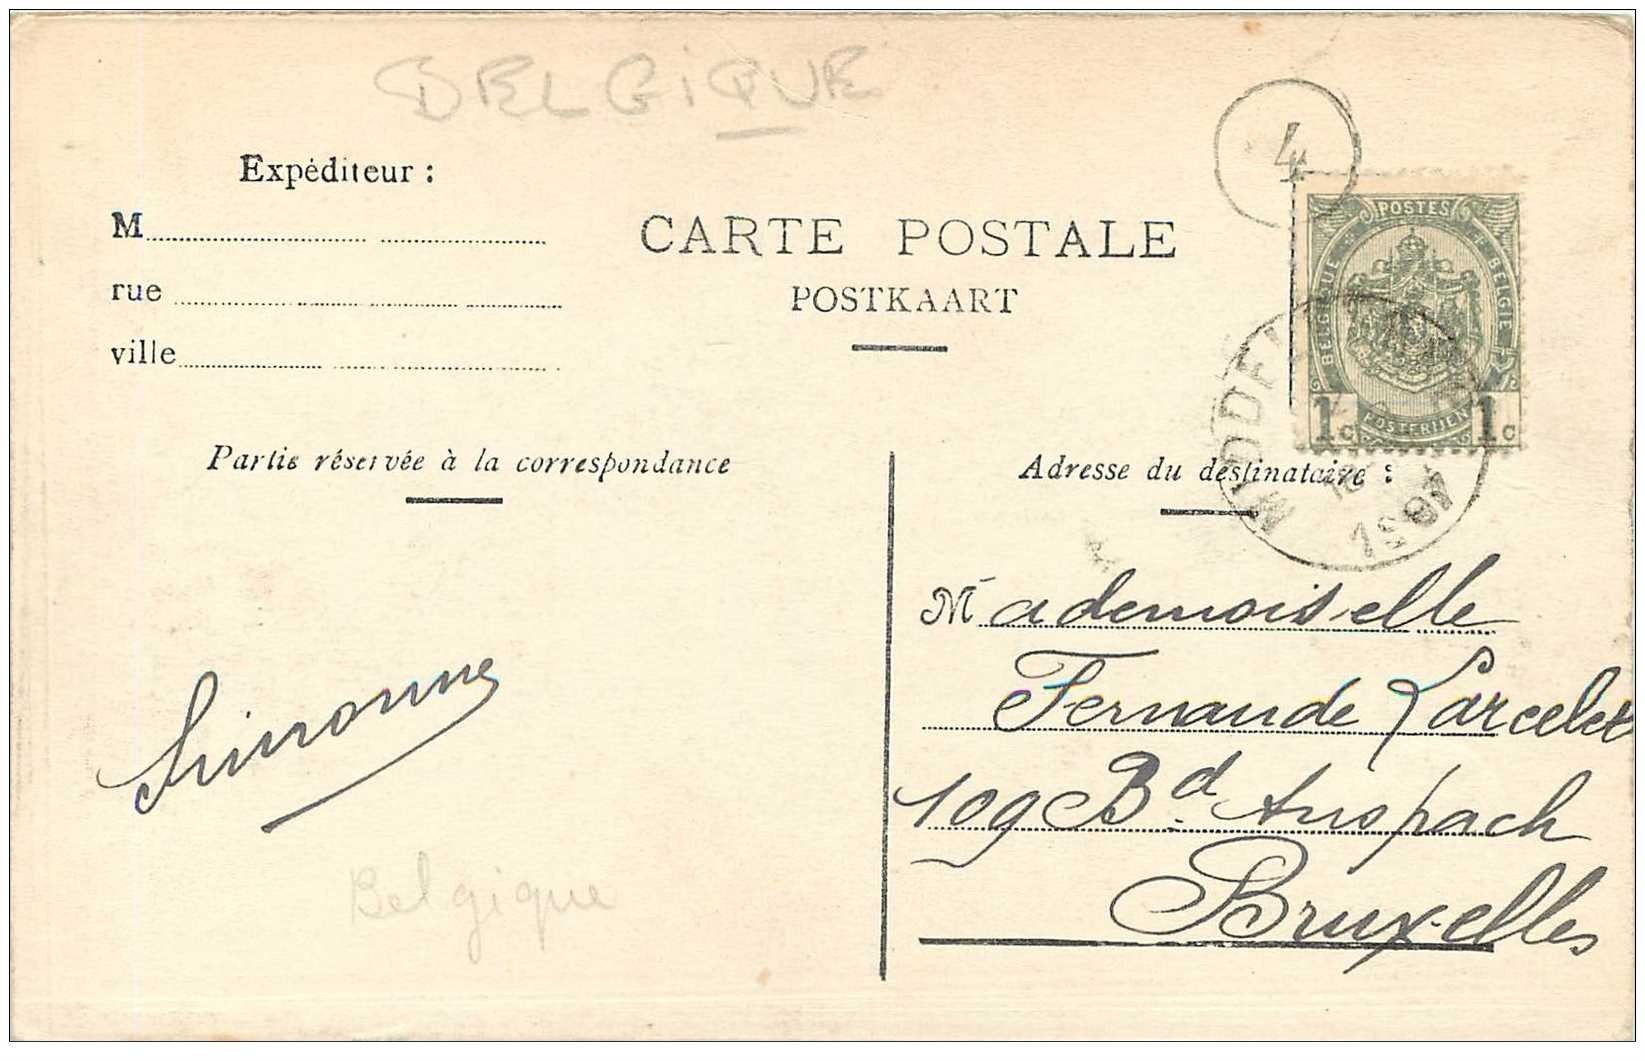 BELGIQUE
4
Expéditeur :
M
rue
ville
CARTE POSTALE
POSTKAART
POSTES
BELGIQUE BELGIË
POSTERIJEN
1c 1c
MIDDEL
1907
Partie réservée à la correspondance
Adresse du destinataire :
Mademoiselle
Fernande Larcelet
109 Bd. Anspach
Bruxelles
Simonne
Belgique